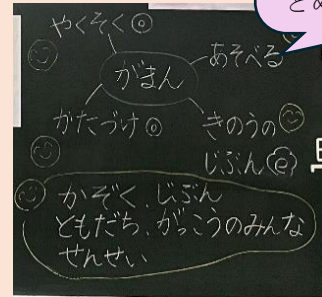 やくそく◎
がまん
あそべる
がたづけ◎
きのうの
じぶん
かぞく、じぶん
ともだち、がっこうのみんな
せんせい